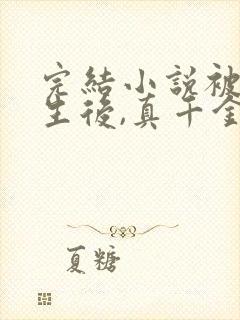 完結小說被
生後,真千金
夏糖